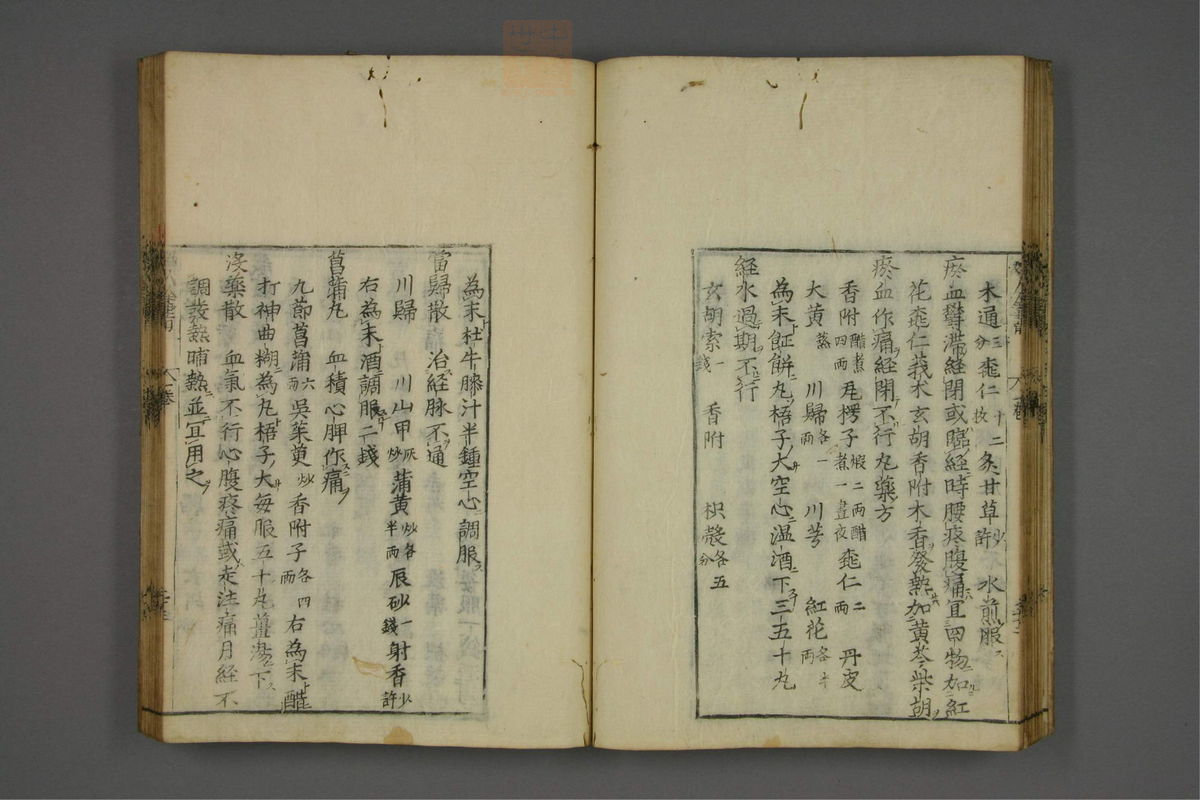 木通三分 桃仁十二枚 灸甘草少許 水煎服
瘀血鬱滯経閉或臨経時腰疼腹痛宜四物加紅
花桃仁莪朮玄胡香附木香發熱加黄芩柴胡
瘀血作痛経閉不行丸藥方
香附醋煮四兩 瓦楞子煅二兩醋煮一晝夜 桃仁二兩 丹皮
大黄蒸 川歸各一兩 川芎 紅花各半兩
為末鉦餅丸梧子大空心温酒下三五十丸
経水過期不行
玄胡索一錢 香附 枳殼各五分
為末杜牛膝汁半鍾空心調服
當歸散 治経脉不通
川歸 川山甲灰炒 蒲黄炒各半兩 辰砂一錢 射香少許
右為末酒調服二錢
菖蒲丸 血積心脾作痛
九節菖蒲六兩 吳茱萸炒 香附子各四兩 右為末醋
打神曲糊為丸梧子大毎服五十丸薑湯下
没藥散 血氣不行心腹疼痛或走注痛月経不
調發熱晡熱並宜用之